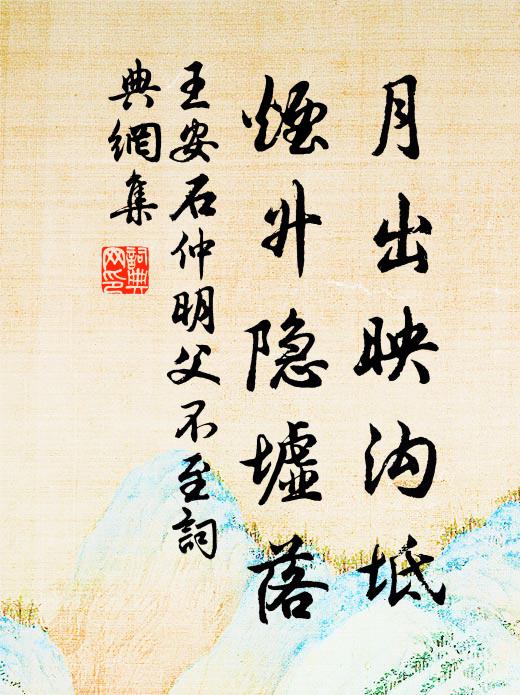 月出映沟坻
煙升隐墟落
王安石仲明父不至詞
典網集
詞典
网印